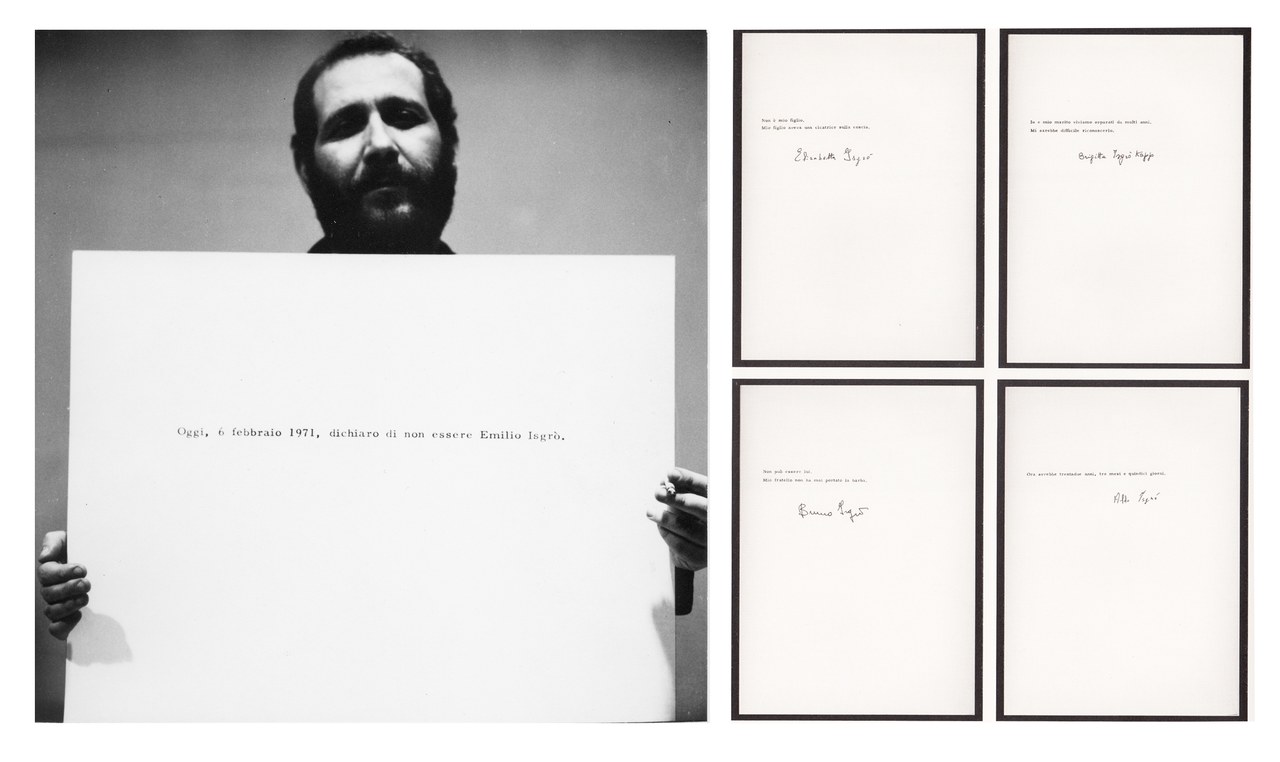 Oggi, 6 febbraio 1971, dichiaro di non essere Emilio Isgrò.
Non è mio figlio.
Mio figlio aveva una cicatrice sulla coscia.
Elisabetta Isgrò
Io e mio marito viviamo separati da molti anni.
Mi sarebbe difficile riconoscerlo.
Brigitta Isgrò Kopp
Non può essere lui.
Mio fratello non ha mai portato la barba.
Bruno Isgrò
Ora avrebbe trentadue anni, tre mesi e quindici giorni.
Isgrò